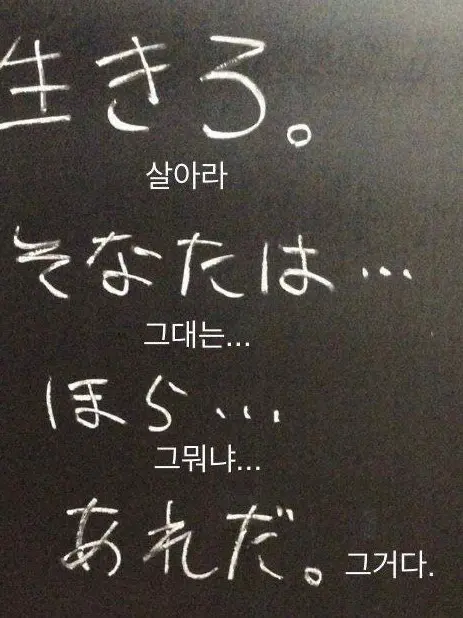 生きろ。
살아라
そなたは…
그대는...
ほら...
그뭐냐...
あれだ。그거다.